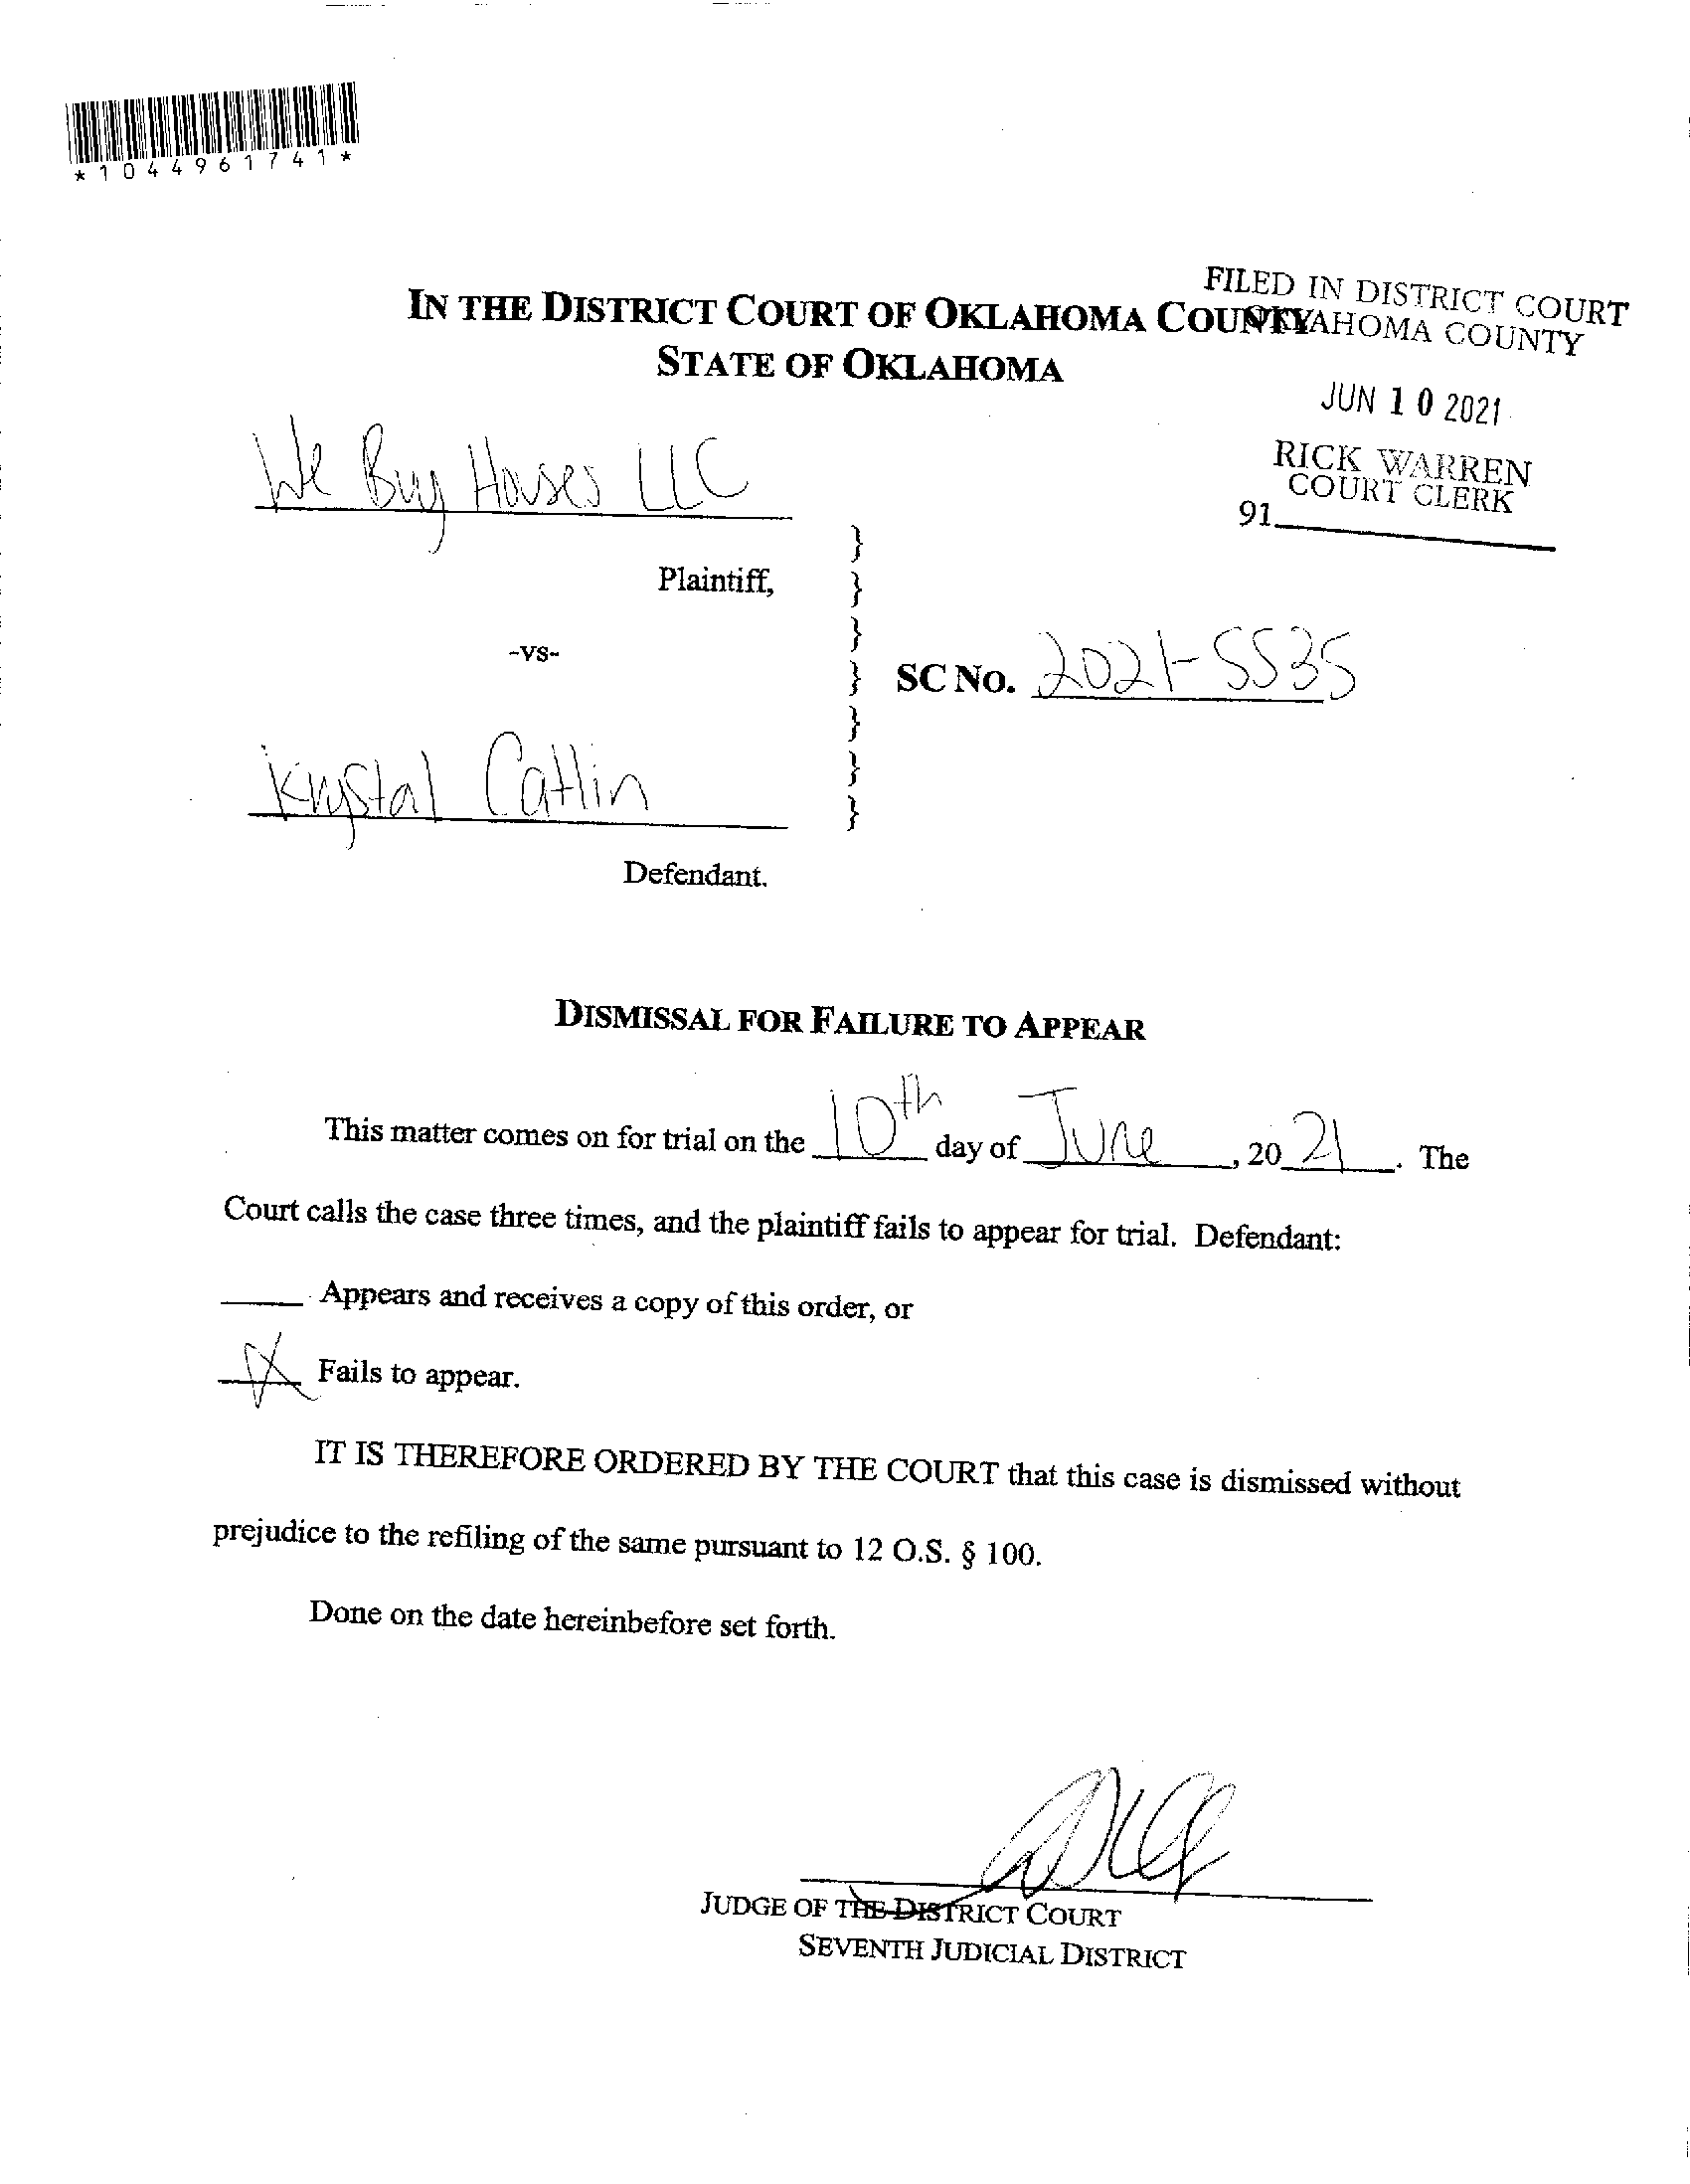 *1044961741*
FILED IN DISTRICT COURT
OKLAHOMA COUNTY
IN THE DISTRICT COURT OF OKLAHOMA COUNTY
STATE OF OKLAHOMA
JUN 10 2021
RICK WARREN
COURT CLERK
91
We Buy Houses LLC
Plaintiff,
-vs-
SC No. 2021-5535
Krystal Catlin
Defendant.
DISMISSAL FOR FAILURE TO APPEAR
This matter comes on for trial on the 10th day of June, 2021. The
Court calls the case three times, and the plaintiff fails to appear for trial. Defendant:
Appears and receives a copy of this order, or
Fails to appear.
IT IS THEREFORE ORDERED BY THE COURT that this case is dismissed without
prejudice to the refiling of the same pursuant to 12 O.S. § 100.
Done on the date hereinbefore set forth.
JUDGE OF THE DISTRICT COURT
SEVENTH JUDICIAL DISTRICT